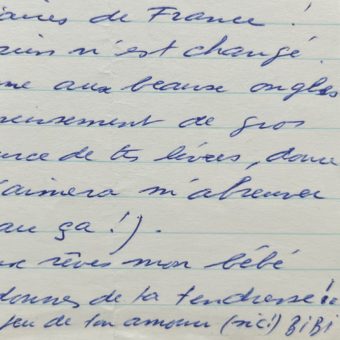 aires de France !
rien n'est changé
me aux beaux ongles
eusement de gros
nce de tes lèvres, donc
'aimera m'abreuver
au ça !).
ux rêves mon bébé
donnes de ta tendresse !
jeu de ton amour (sic!) BiBi